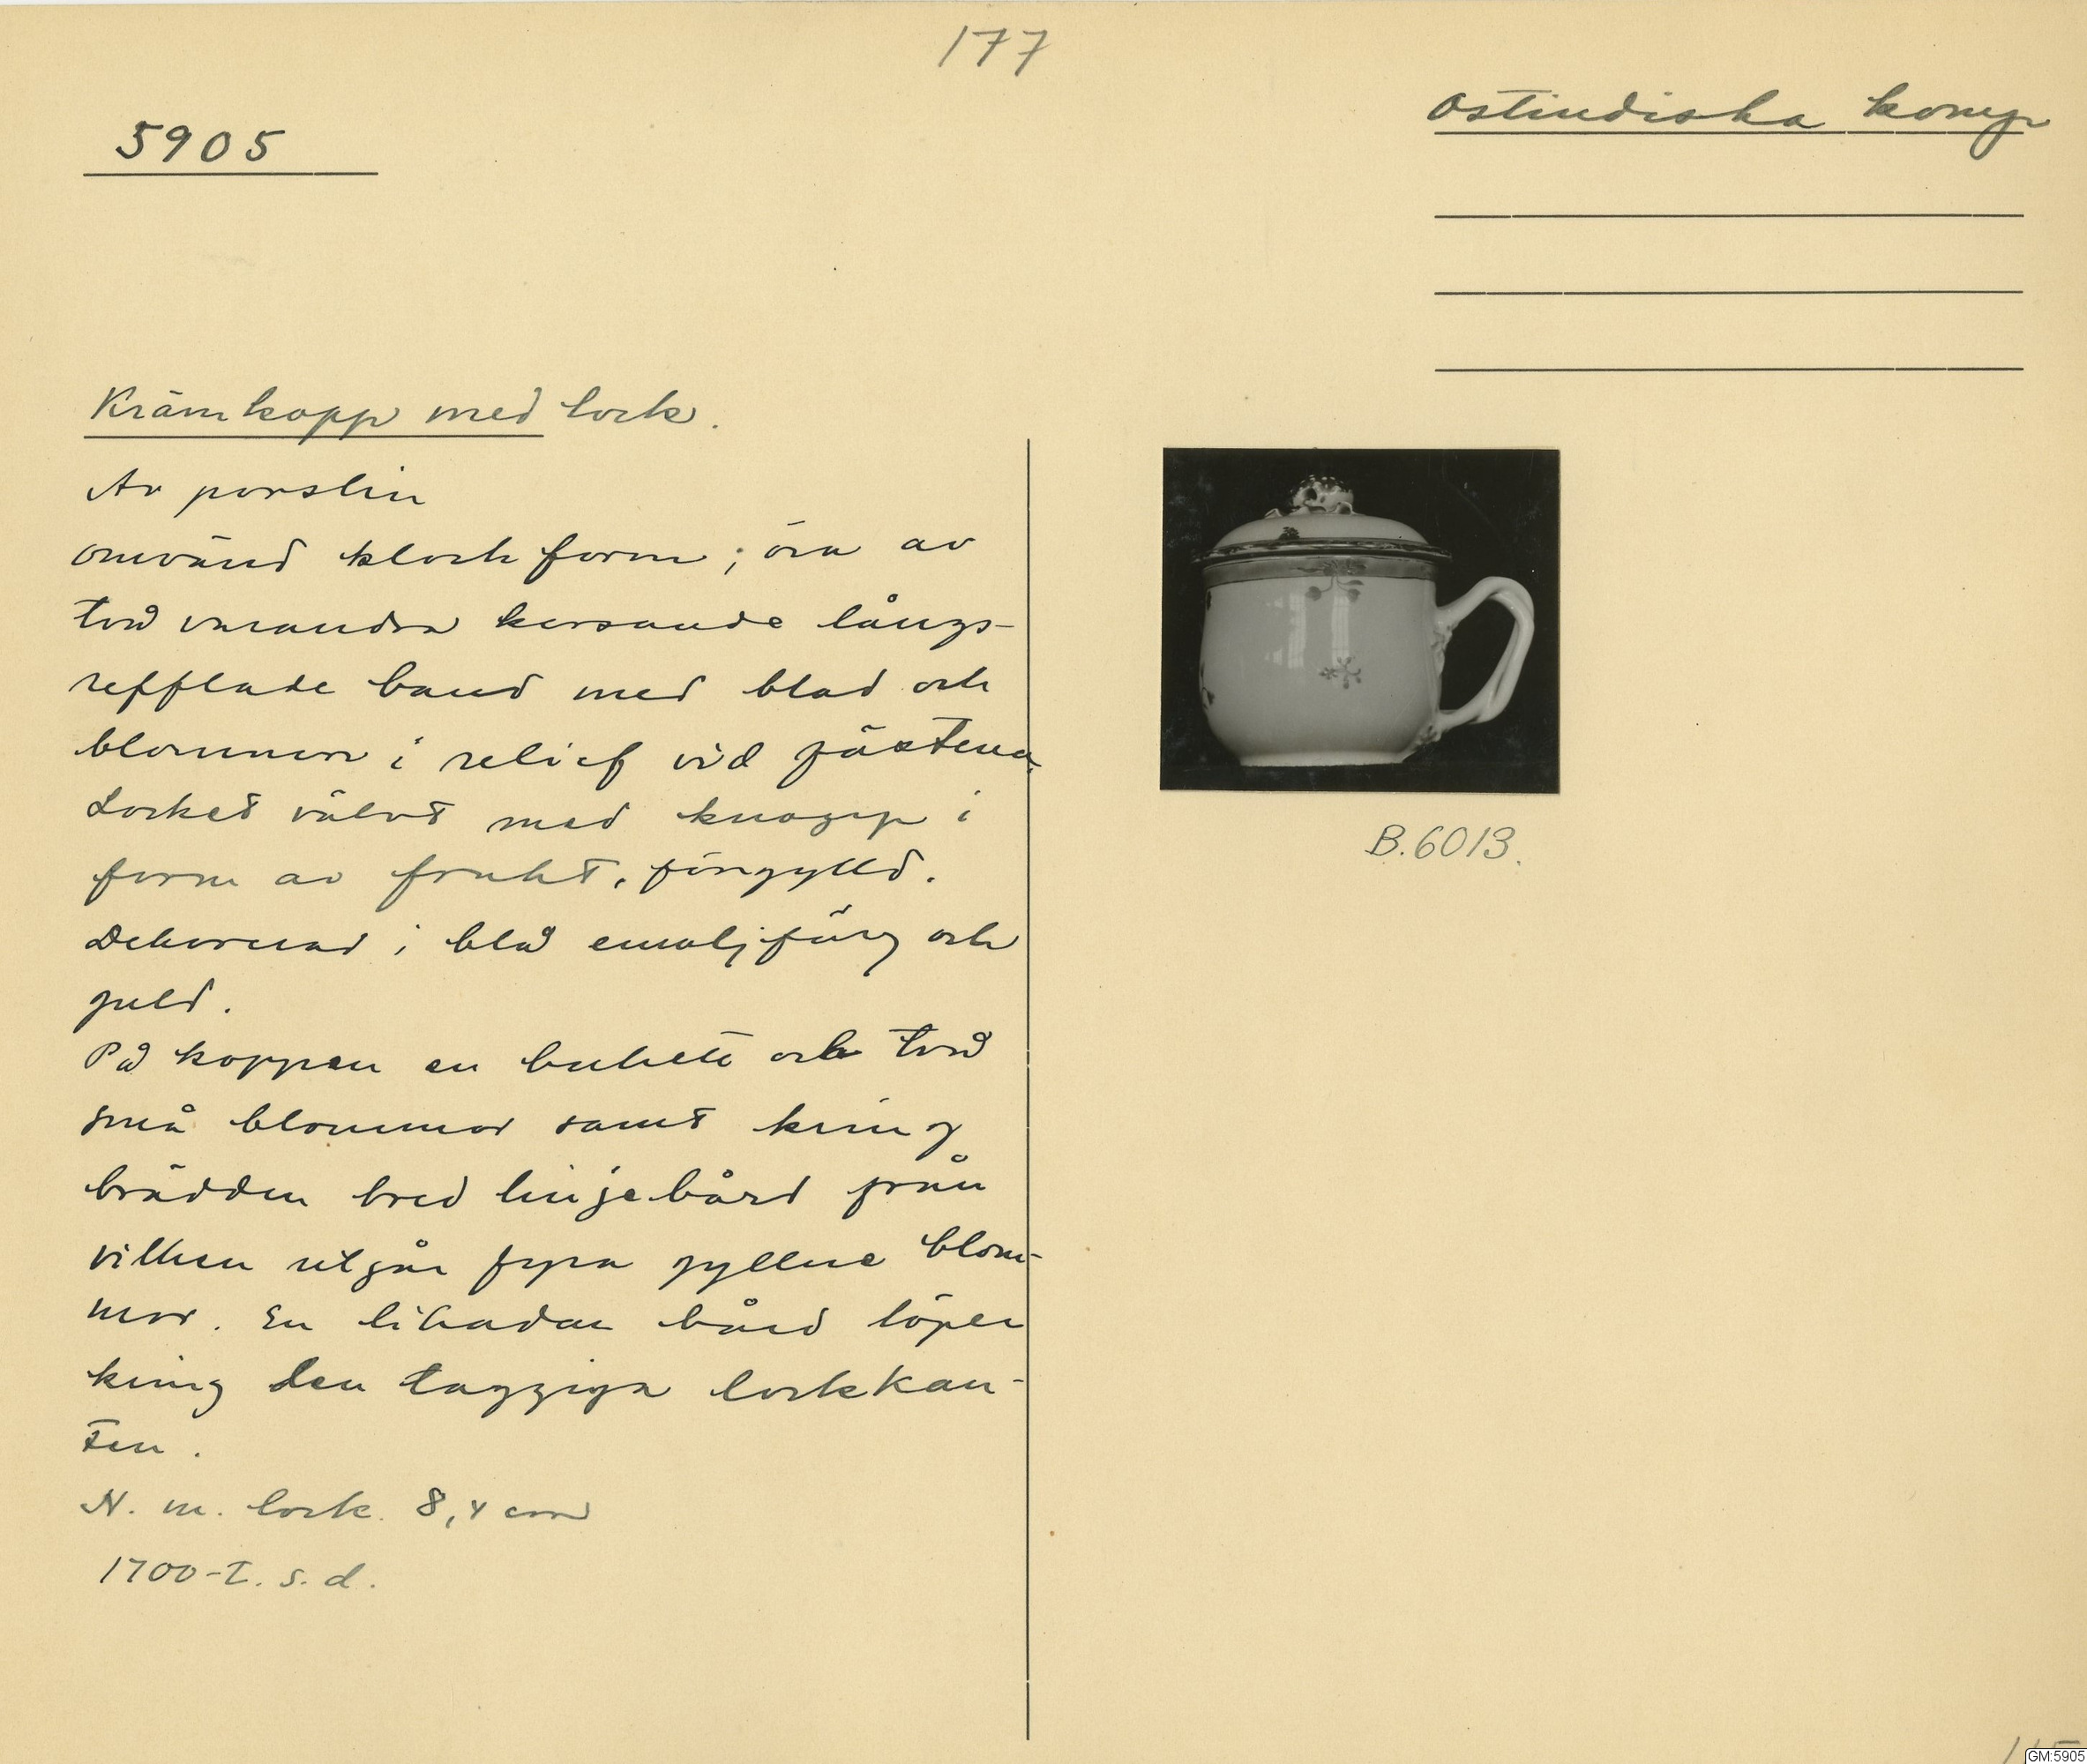 177
5905
Ostindiska komp
Krämkopp med lock.
Av porslin
omvänd klockform; öra av
två varandra korsande längs-
refflade band med blad och
blommor i relief vid fästena.
Locket välvt med knopp i
form av frukt, förgylld.
Dekorerad i blå emaljfärg och
guld.
På koppen en bukett och två
små blommor samt kring
brädden bred linjebård från
vilken utgår fyra gyllne blom-
mor. En likadan bård löper
kring den taggiga lockkan-
ten.
H. m. lock. 8,4 cm
1700-t. s. d.
B.6013.
GM:5905